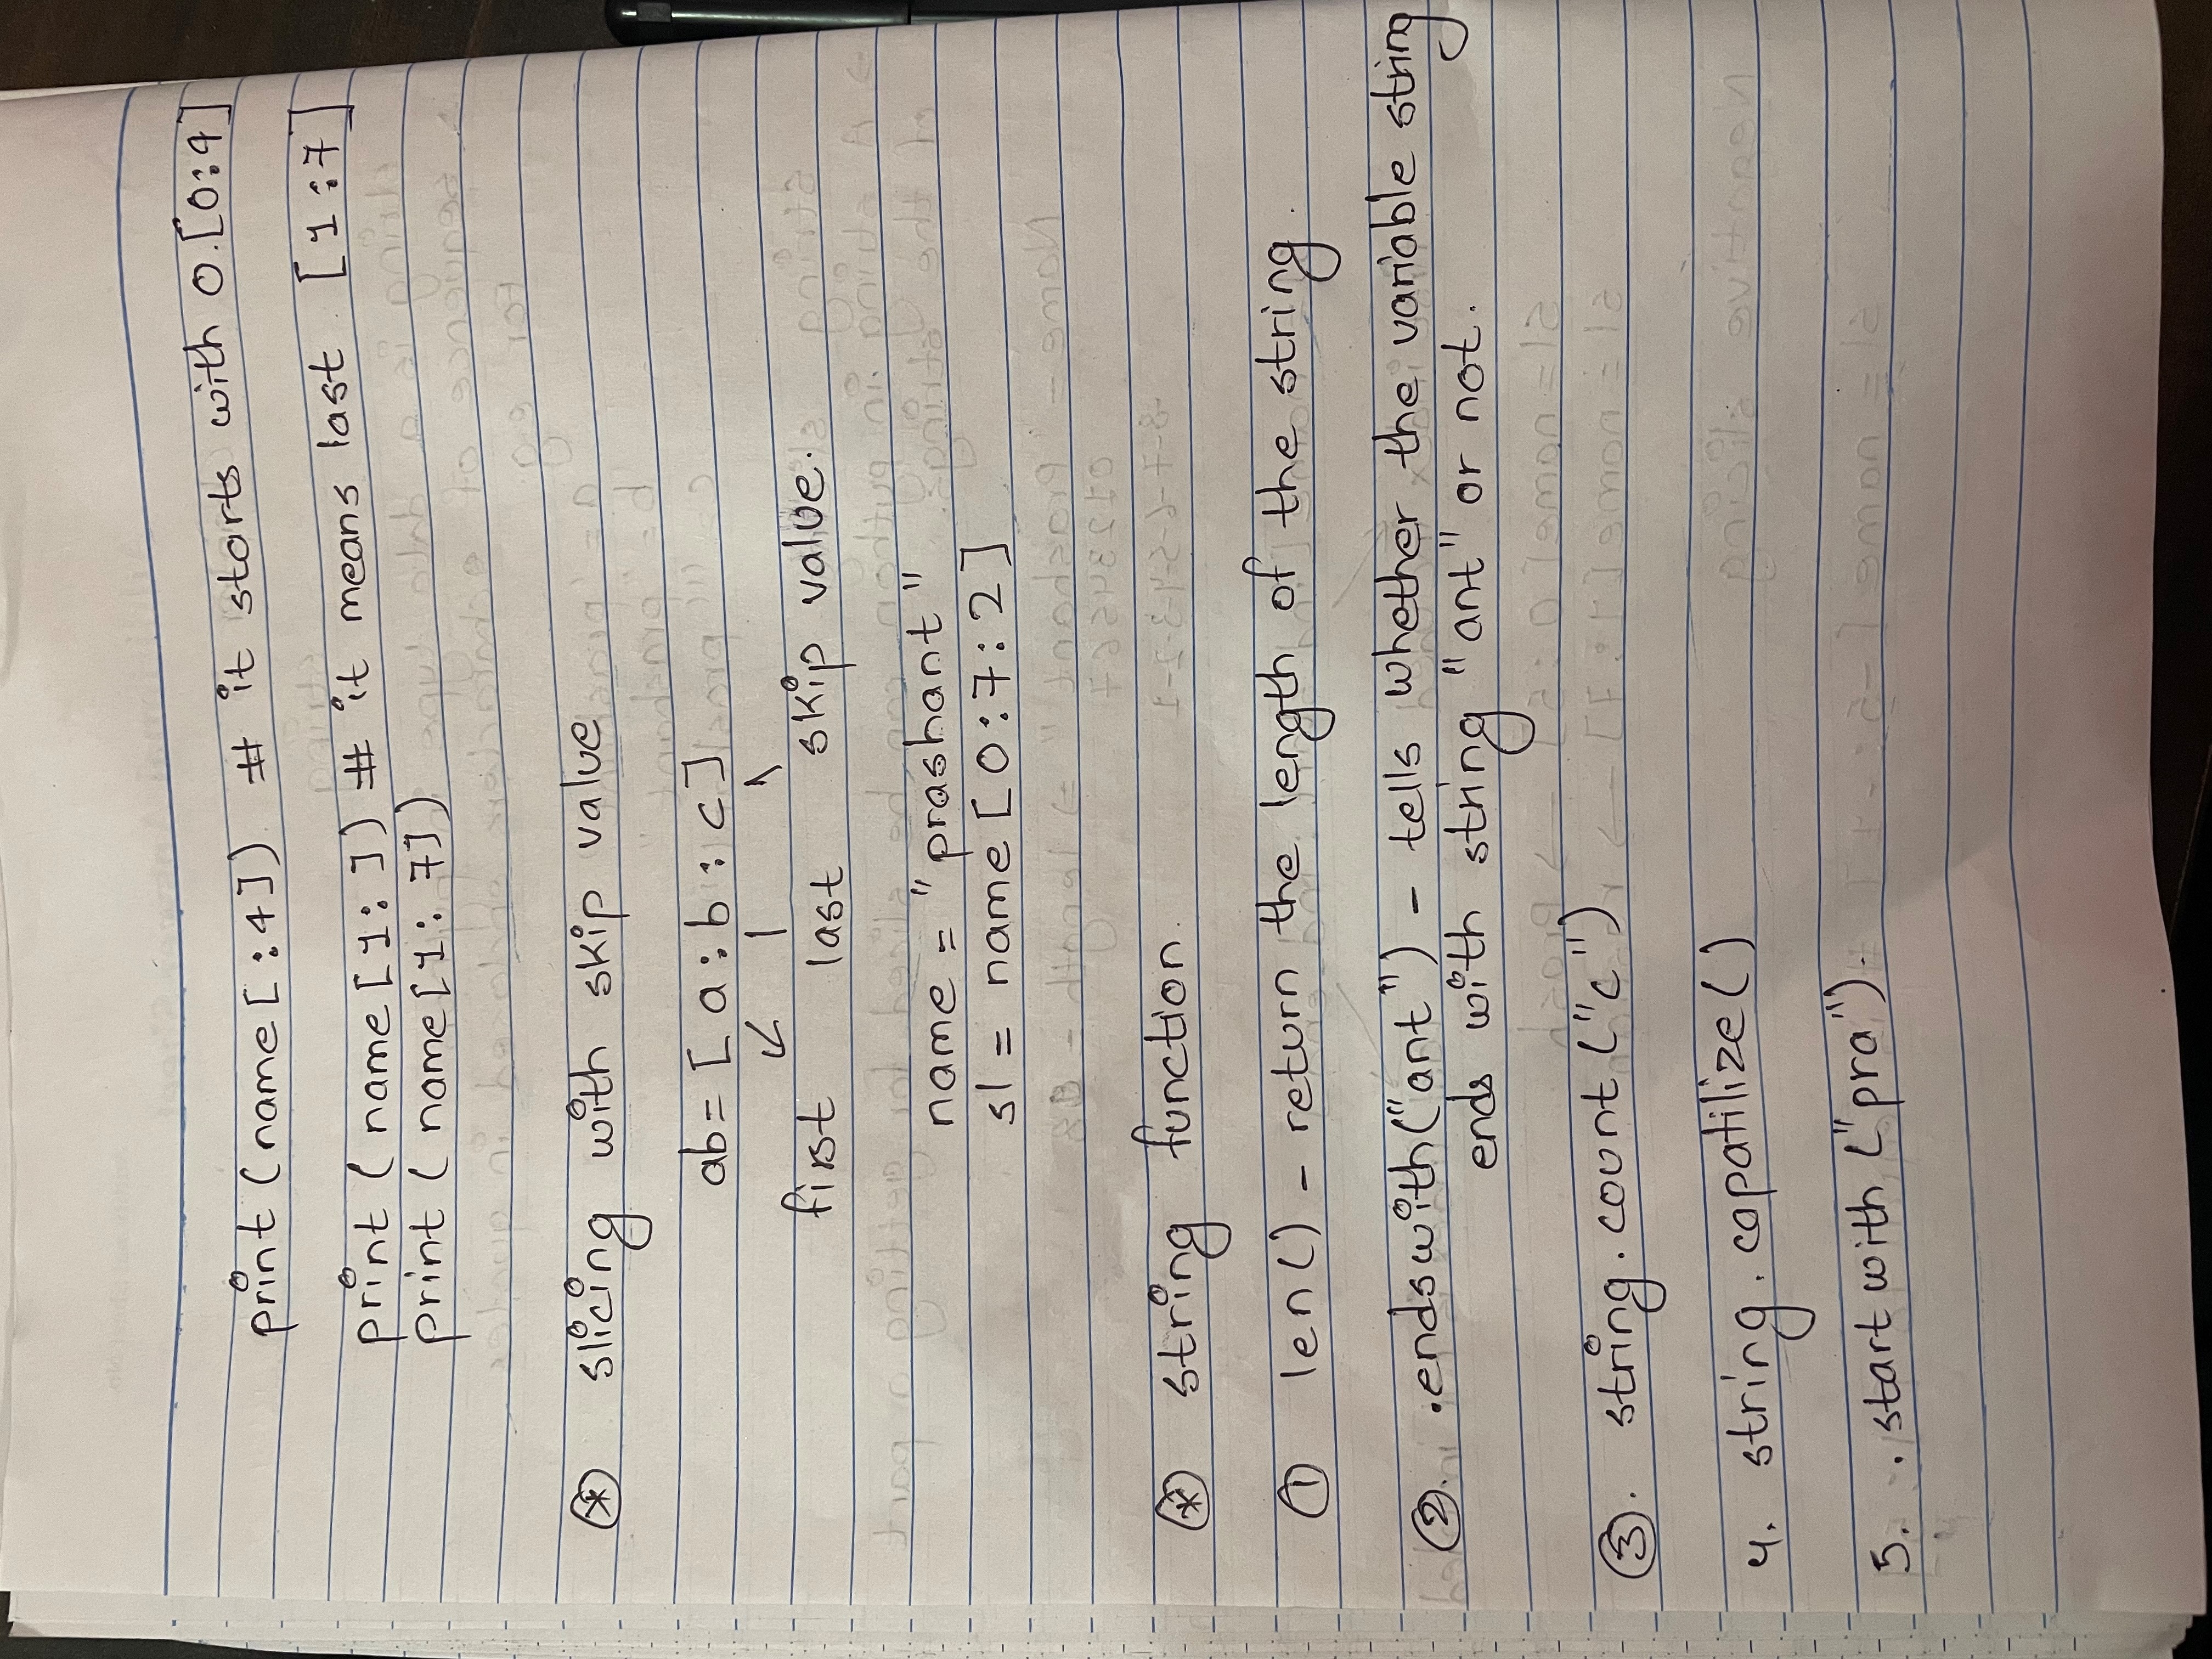 print (name[:4]) # it starts with 0.[0:4]
print (name[1:]) # it means last [1:7]
print (name[1:7])
* slicing with skip value
ab = [a:b:c]
first last skip value.
name = "prashant"
sl = name[0:7:2]
* string function
1 len() - return the length of the string.
2. .endswith("ant") - tells whether the variable string
ends with string "ant" or not.
3. string.count("c")
4. string.capatilize()
5. .startwith("pra").